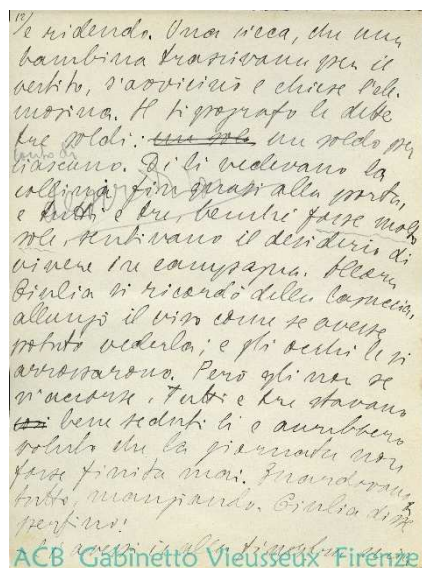 12)
e ridendo. Una cieca, che una
bambina trascinava per il
vestito, s'avvicinò e chiese l'ele-
mosina. Il tipografo le dette
tre soldi: un solo un soldo per
ciascuno. Di lì vedevano la
collina fin quasi alla porta,
e tutti e tre, benché fosse molto
sole, sentivano il desiderio di
vivere in campagna. Allora
Giulia si ricordò della Casuccia,
allungò il viso come se avesse
potuto vederla; e gli occhi le si
arrossarono. Però gli non se
n'accorse. Tutti e tre stavano
così bene seduti lì e avrebbero
voluto che la giornata non
fosse finita mai. Guardavano
tutto, mangiando. Giulia disse
perfino:
ACB Gabinetto Vieusseux Firenze